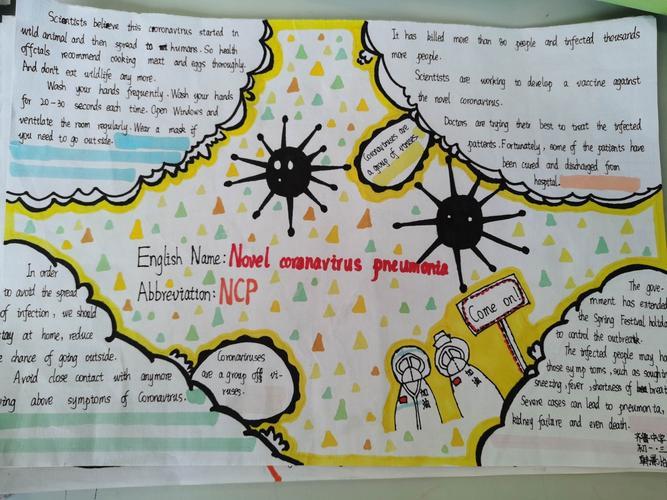 Scientists believe this coronavirus started in
wild animal and then spread to humans. So health
officals recommend cooking meat and eggs thoroughly.
And don't eat wildlife any more.
Wash your hands frequently. Wash your hands
for 20-30 seconds each time. Open Windows and
ventilate the room regularly. Wear a mask if
you need to go outside.
It has killed more than 80 people and infected thousands
more people.
Scientists are working to develop a vaccine against
the novel coronavirus.
Doctors are trying their best to treat the infected
patients. Fortunately, some of the patients have
been cured and discharged from
hospital.
Coronaviruses are
a group of viruses.
English Name: Novel coronavirus pneumonia
Abbreviation: NCP
In order
to avoid the spread
of infection, we should
stay at home, reduce
chance of going outside.
Avoid close contact with anymore
above symptoms of Coronavirus.
Coronaviruses
are a group off vi-
ruses.
Come on!
加油
加油
The gove-
rnment has extended
the Spring Festival holida
to control the outbreak.
The infected people may ha
those symp toms, such as
sneezing, fever, shortness of brea
Severe cases can lead to pneumon ia,
kidney failure and even death.